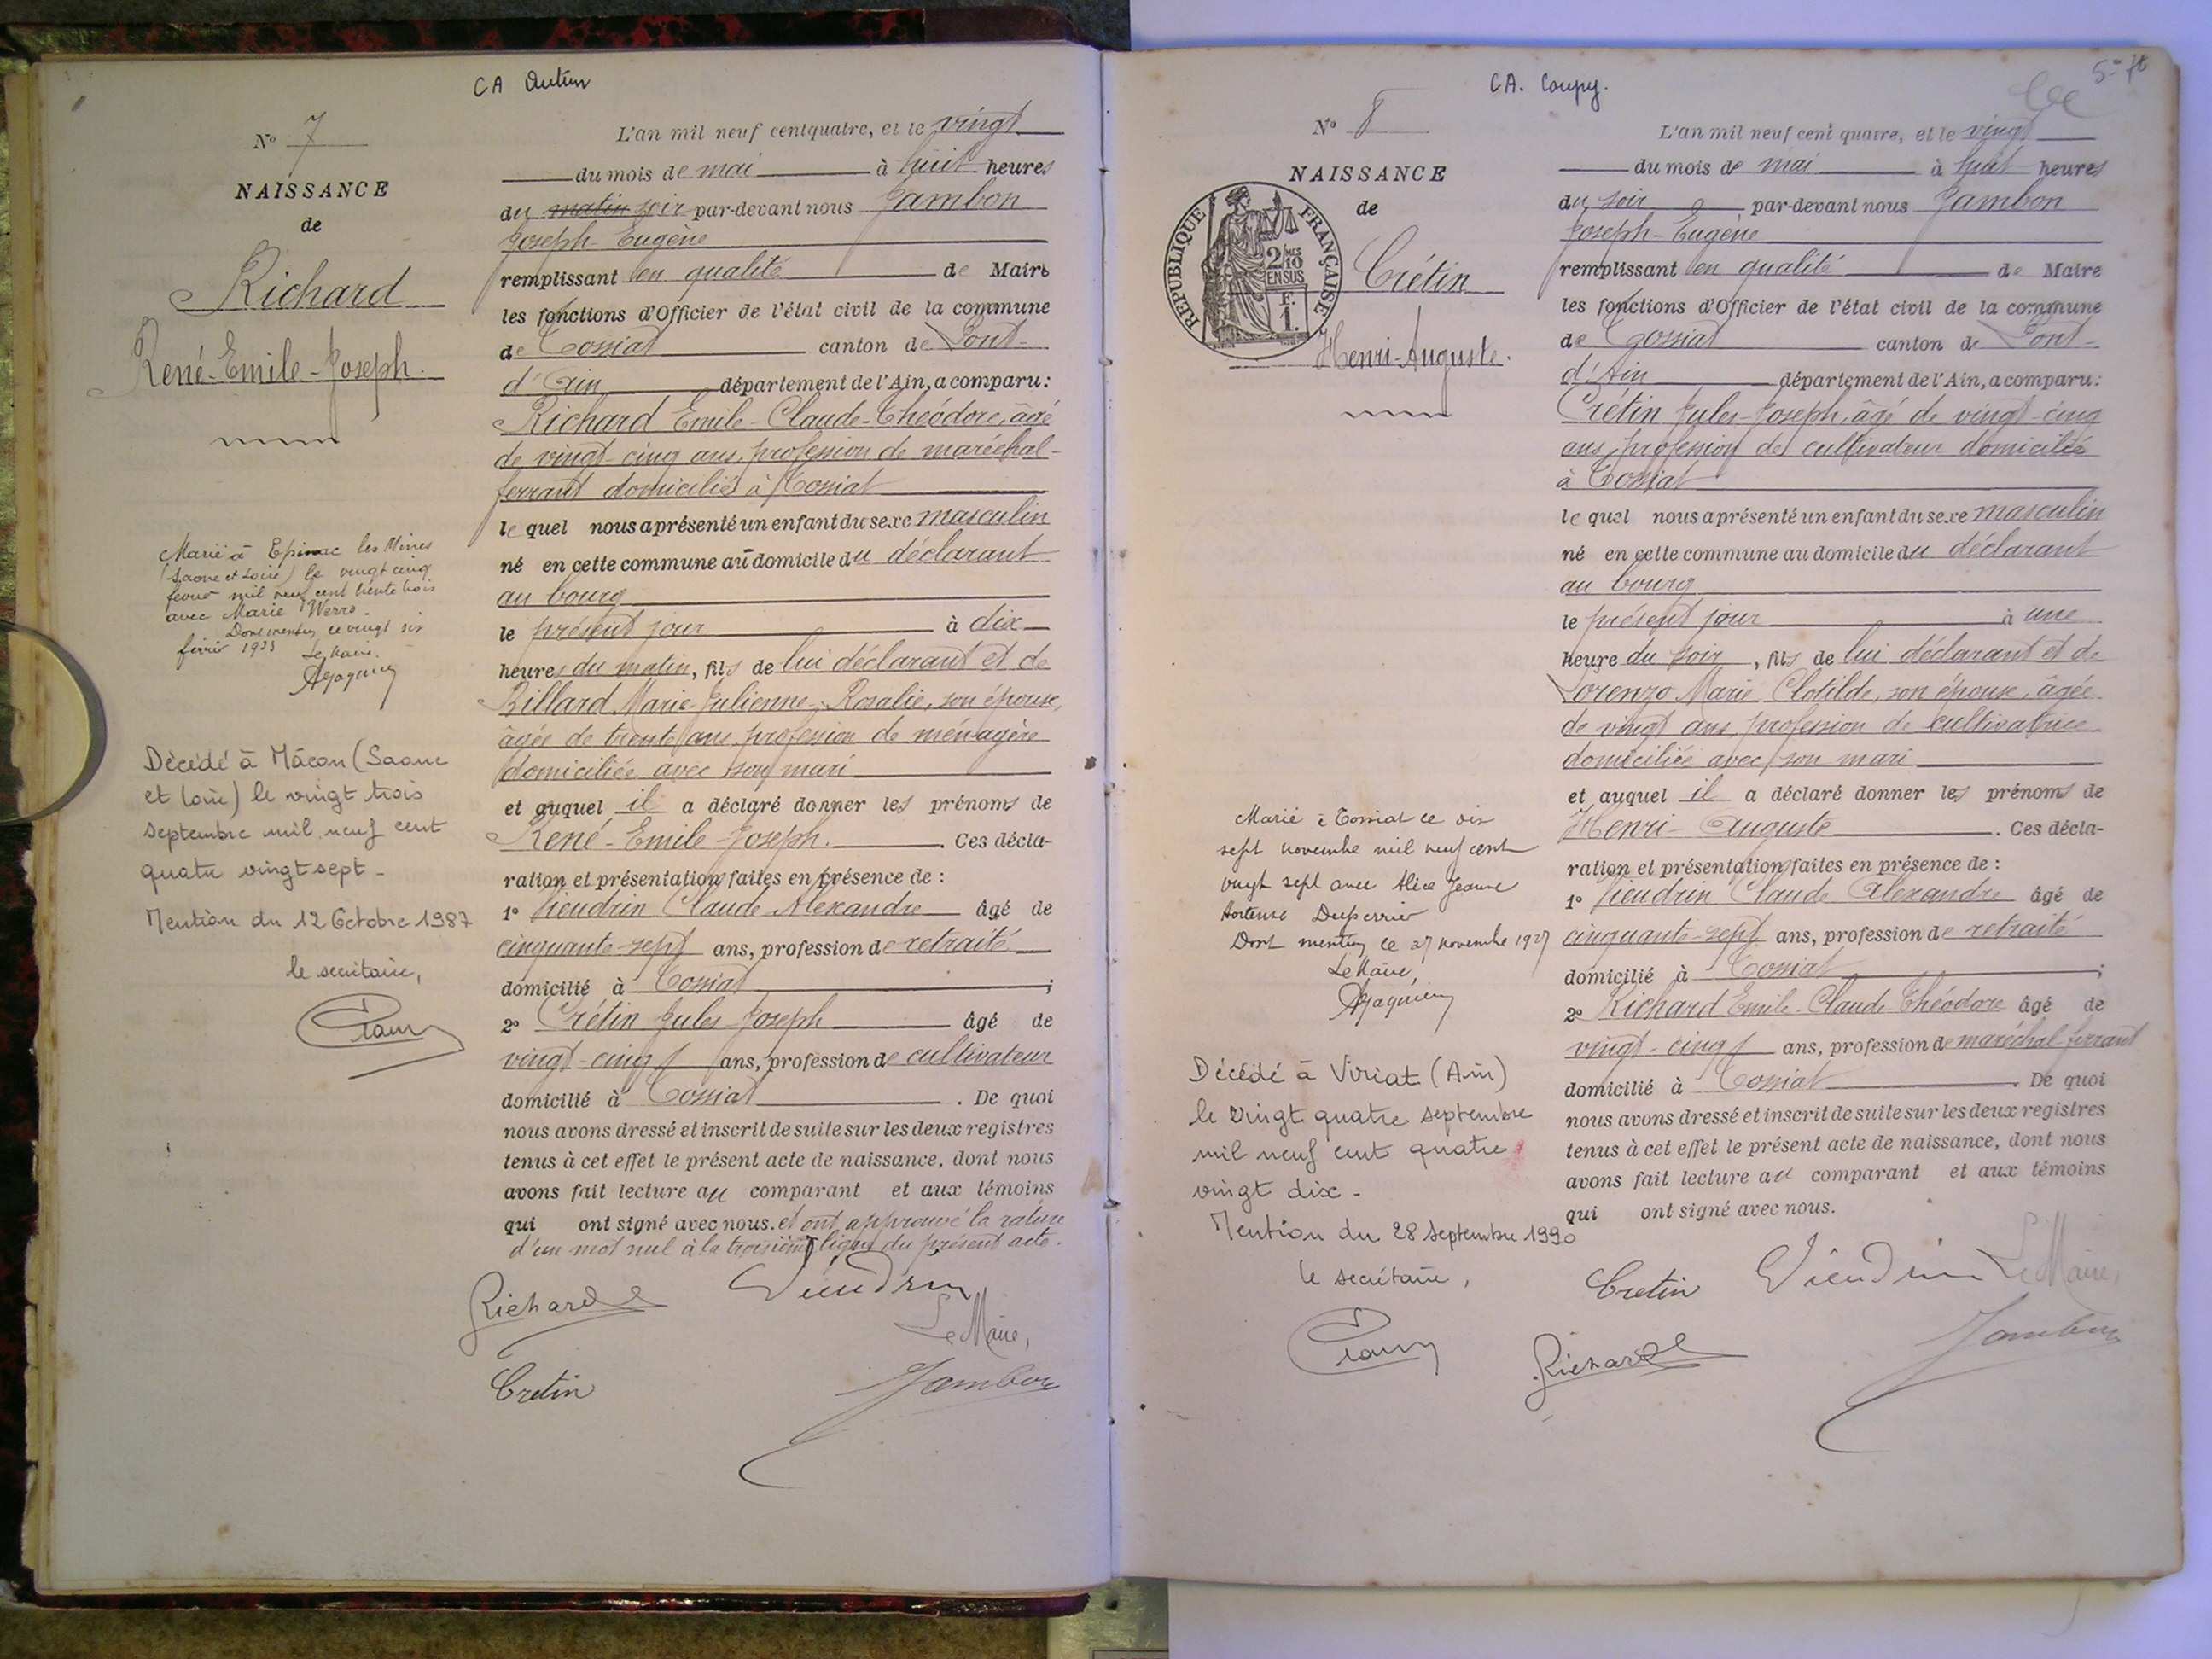 CA Autun
N° 7
NAISSANCE
de
Richard
René-Emile-Joseph.
Marié à Epinac les Mines
(Saone et Loire) le vingt cinq
février mil neuf cent trente trois
avec Marie Werro.
Dont mention ce vingt six
février 1933 Le Maire.
Décédé à Mâcon (Saone
et Loire) le vingt trois
septembre mil neuf cent
quatre vingt sept -
Mention du 12 Octobre 1987
le secrétaire,
L'an mil neuf cent quatre, et le vingt
du mois de mai à huit heures
du matin soir par-devant nous Jambon
Joseph-Eugène
remplissant en qualité de Maire
les fonctions d'Officier de l'état civil de la commune
de Tossiat canton de Pont-
d'Ain département de l'Ain, a comparu:
Richard Emile-Claude-Théodore, âgé
de vingt-cinq ans, profession de maréchal-
ferrant domicilié à Tossiat
le quel nous a présenté un enfant du sexe masculin
né en cette commune au domicile du déclarant
au bourg
le présent jour à dix
heures du matin, fils de lui déclarant et de
Billard Marie-Julienne-Rosalie, son épouse,
âgée de trente ans, profession de ménagère
domiciliée avec son mari
et auquel il a déclaré donner les prénoms de
René-Emile-Joseph. Ces décla-
ration et présentation faites en présence de :
1° Vieudrin Claude Alexandre âgé de
cinquante-sept ans, profession de retraité
domicilié à Tossiat ;
2° Crétin Jules Joseph âgé de
vingt-cinq ans, profession de cultivateur
domicilié à Tossiat . De quoi
nous avons dressé et inscrit de suite sur les deux registres
tenus à cet effet le présent acte de naissance, dont nous
avons fait lecture au comparant et aux témoins
qui ont signé avec nous. et ont approuvé la rature
d'un mot nul à la troisième ligne du présent acte.
Richard Vieudrin
Le Maire,
Cretin Jambon
CA. Coupy.
5e ft
N° 8
NAISSANCE
de
RÉPUBLIQUE FRANÇAISE
2/10 EN SUS
F. 1.
Crétin
Henri-Auguste.
Marié à Tossiat ce dix
sept novembre mil neuf cent
vingt sept avec Alice Jeanne
Hortense Duperrier
Dont mention ce 27 novembre 1927
Le Maire,
Décédé à Viriat (Ain)
le vingt quatre septembre
mil neuf cent quatre
vingt dix -
Mention du 28 Septembre 1990
le secrétaire,
L'an mil neuf cent quatre, et le vingt
du mois de mai à huit heures
du soir par-devant nous Jambon
Joseph-Eugène
remplissant en qualité de Maire
les fonctions d'Officier de l'état civil de la commune
de Tossiat canton de Pont-
d'Ain département de l'Ain, a comparu:
Crétin Jules-Joseph, âgé de vingt-cinq
ans, profession de cultivateur domicilié
à Tossiat
le quel nous a présenté un enfant du sexe masculin
né en cette commune au domicile du déclarant
au bourg
le présent jour à une
heure du soir, fils de lui déclarant et de
Lorenzo Marie Clotilde, son épouse, âgée
de vingt ans, profession de cultivatrice
domiciliée avec son mari
et auquel il a déclaré donner les prénoms de
Henri-Auguste . Ces décla-
ration et présentation faites en présence de :
1° Vieudrin Claude Alexandre âgé de
cinquante-sept ans, profession de retraité
domicilié à Tossiat ;
2° Richard Emile-Claude Théodore âgé de
vingt-cinq ans, profession de maréchal ferrant
domicilié à Tossiat . De quoi
nous avons dressé et inscrit de suite sur les deux registres
tenus à cet effet le présent acte de naissance, dont nous
avons fait lecture au comparant et aux témoins
qui ont signé avec nous.
Cretin Vieudrin Le Maire,
Richard Jambon